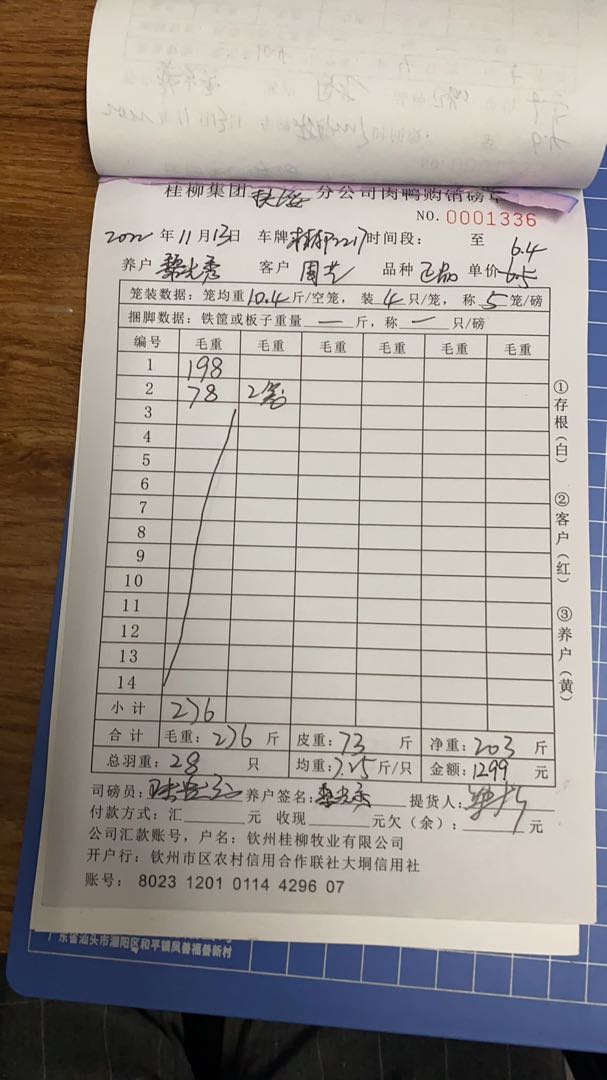 桂柳集团 分公司肉鸭购销磅单
NO. 0001336
2022 年 11 月 13 日 车牌 2217 时间段： 至
6.4
养户 黎光秀 客户 周芝 品种 正品 单价 6.5
笼装数据：笼均重 10.4 斤/空笼，装 4 只/笼，称 5 笼/磅
捆脚数据：铁筐或板子重量 — 斤，称 — 只/磅
编号 毛重 毛重 毛重 毛重 毛重 毛重
1 198
2 78 2笼
3
4
5
6
7
8
9
10
11
12
13
14
小计 276
合计 毛重：276 斤 皮重：73 斤 净重：203 斤
总羽重：28 只 均重：7.25 斤/只 金额：1299 元
①存根（白） ②客户（红） ③养户（黄）
司磅员： 养户签名：黎光秀 提货人：
付款方式：汇 元 收现 元欠（余）： 元
公司汇款账号，户名：钦州桂柳牧业有限公司
开户行：钦州市区农村信用合作联社大垌信用社
账号： 8023 1201 0114 4296 07
广东省汕头市潮阳区和平镇凤善福善新村